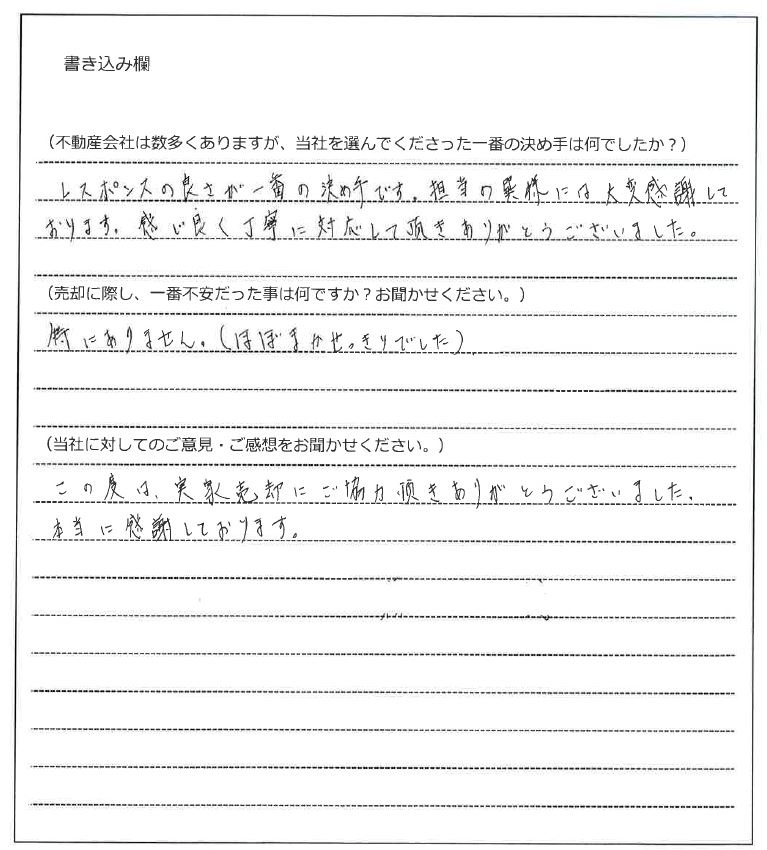 書き込み欄
（不動産会社は数多くありますが、当社を選んでくださった一番の決め手は何でしたか？）
レスポンスの良さが一番の決め手です。担当の奥様には大変感謝して
おります。感じ良く丁寧に対応して頂きありがとうございました。
（売却に際し、一番不安だった事は何ですか？お聞かせください。）
特にありません。（ほぼまかせっきりでした）
（当社に対してのご意見・ご感想をお聞かせください。）
この度は、実家売却にご協力頂きありがとうございました.
本当に感謝しております。